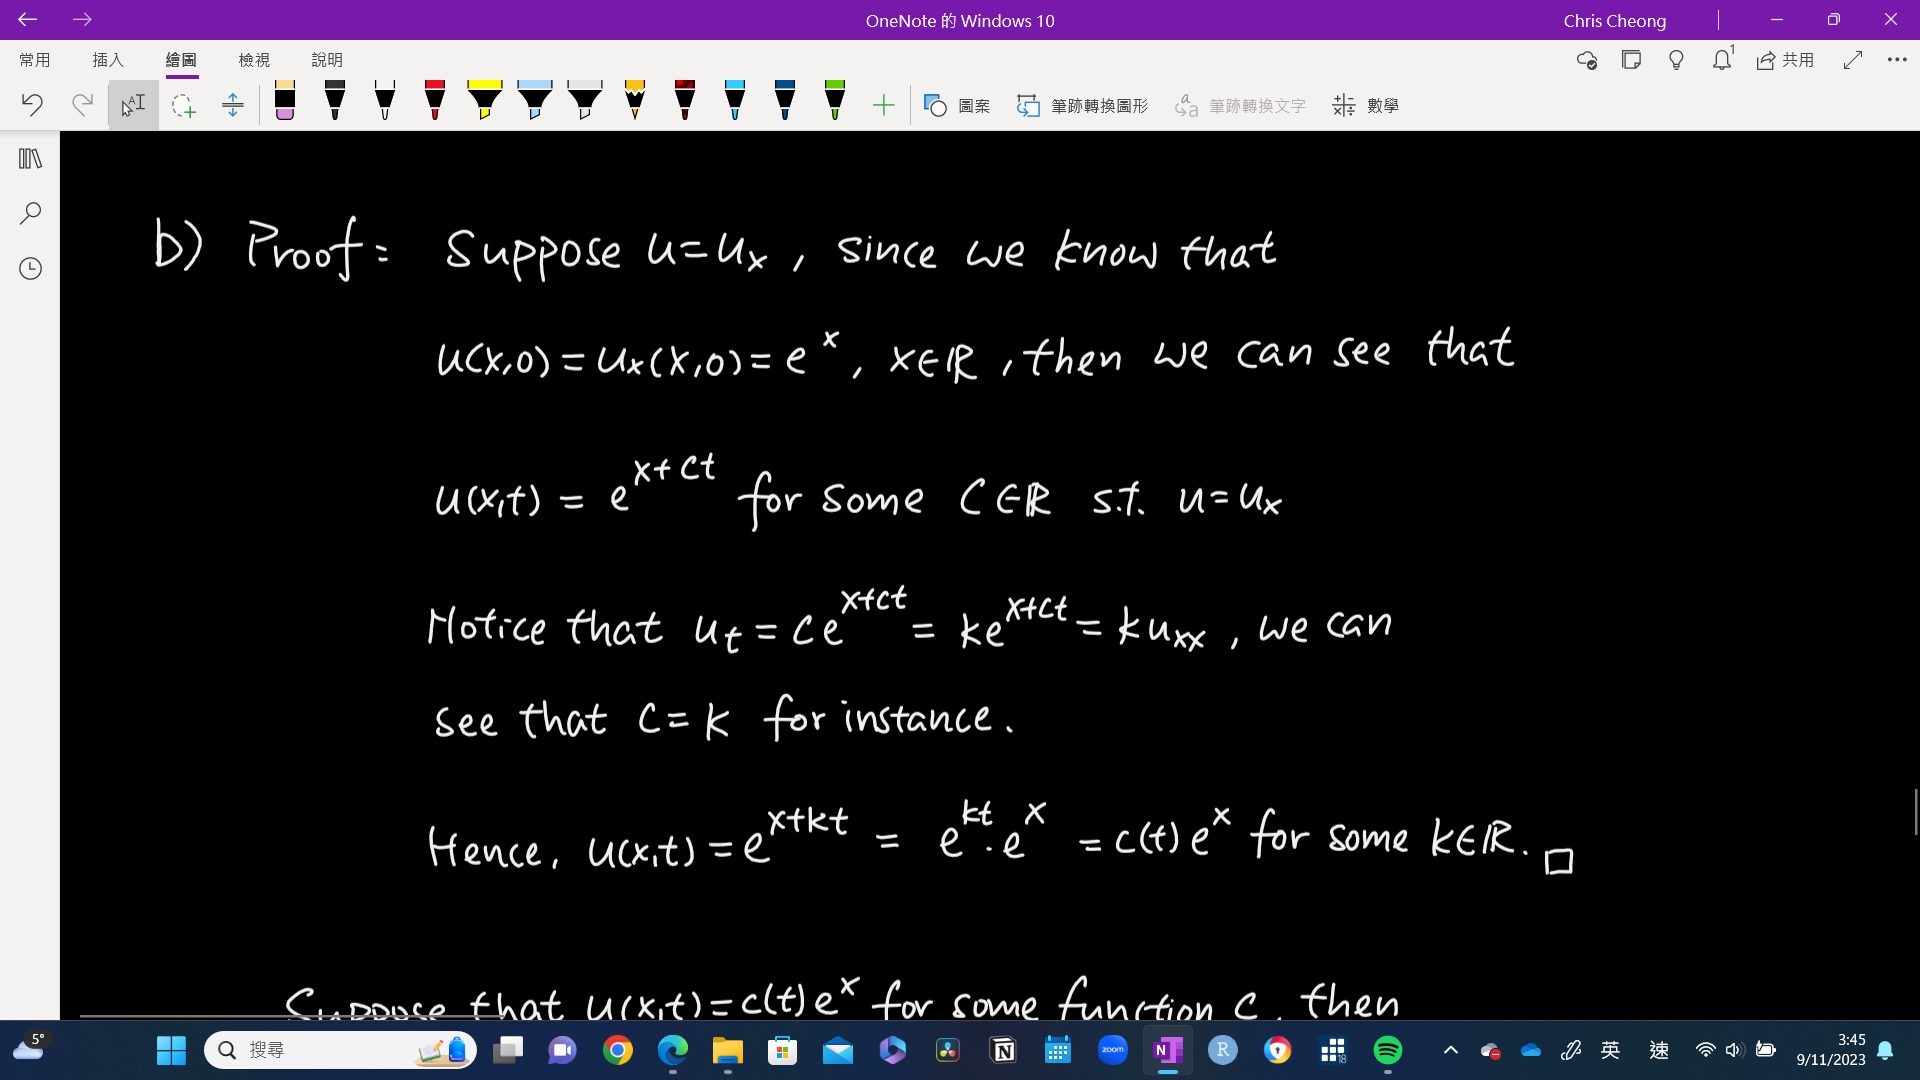 OneNote 的 Windows 10
Chris Cheong
常用 插入 繪圖 檢視 說明
1
共用
圖案 筆跡轉換圖形 筆跡轉換文字 數學
b) Proof: Suppose u=uₓ, since we know that
u(x,0) = uₓ(x,0) = eˣ, x∈ℝ, then we can see that
u(x,t) = e^{x+ct} for some c∈ℝ s.t. u=uₓ
Notice that u_t = ce^{x+ct} = ke^{x+ct} = ku_{xx}, we can
see that c=k for instance.
Hence, u(x,t) = e^{x+kt} = e^{kt}·e^x = c(t)e^x for some k∈ℝ. □
Suppose that u(x,t)=c(t)e^x for some function c, then
5°
搜尋
zoom
N
R
18
英
速
3:45
9/11/2023